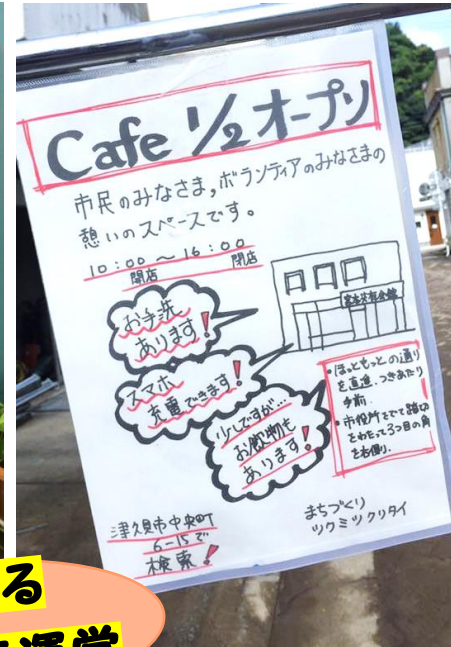 Cafe 1/2 オープン
市民のみなさま,ボランティアのみなさまの
憩いのスペースです。
10:00～16:00
開店 閉店
お手洗
あります!
スマホ
充電できます!
少しですが…
お飲物も
あります!
・ほっともっとの通り
を直進.つきあたり
手前.
・市役所をでて踏切
をわたって3つ目の角
を右側.
津久見市中央町
6-15で
検索!
まちづくり
ツクミツクリタイ
る
運営